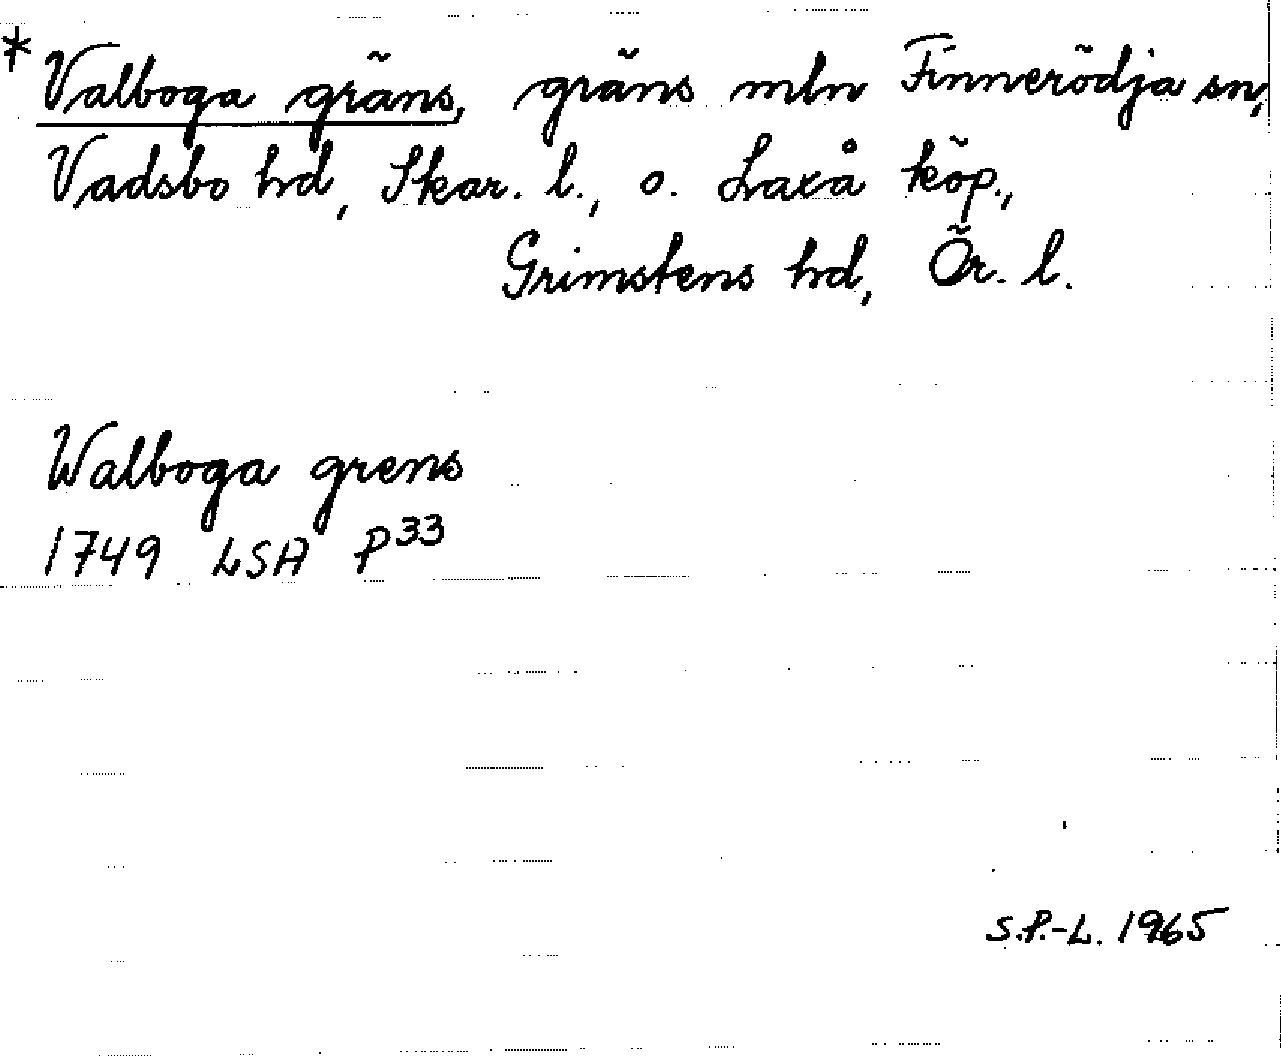 * Valboga gräns, gräns mln Finnerödja sn,
Vadsbo hd, Skar. l., o. Laxå köp.,
Grimstens hd, Ör. l.
Walboga grens
1749 LSA P33
S.P.-L. 1965